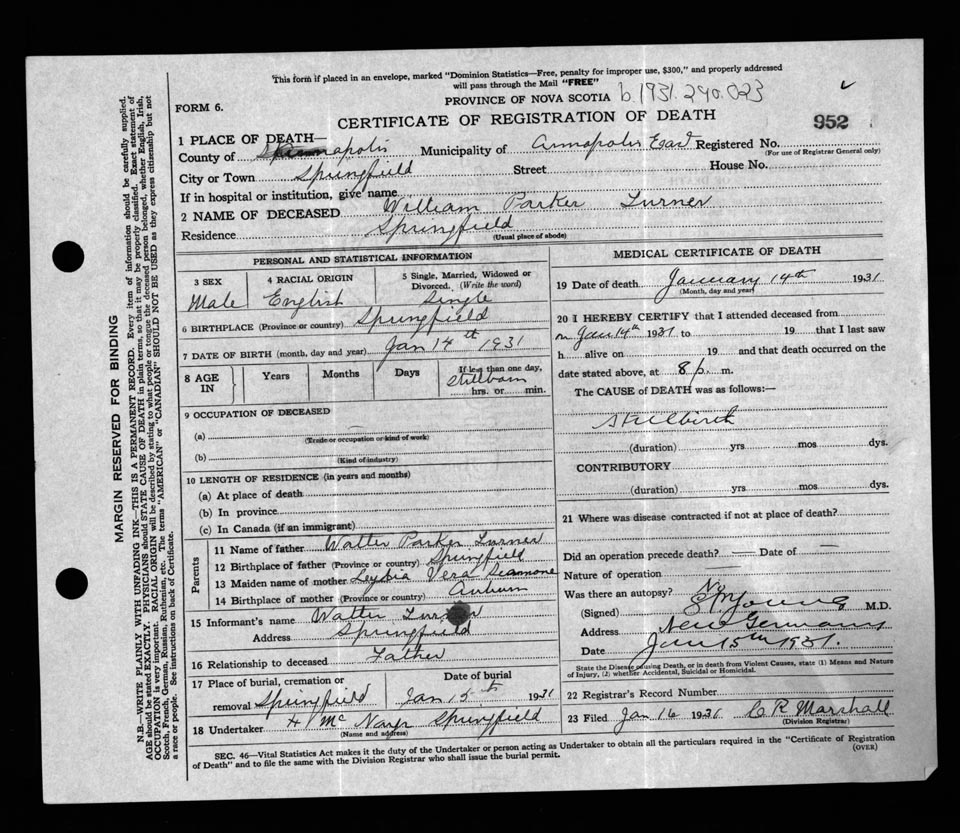 This form if placed in an envelope, marked "Dominion Statistics—Free, penalty for improper use, $300," and properly addressed
will pass through the Mail "FREE"
FORM 6.
PROVINCE OF NOVA SCOTIA b.1931.290.023
CERTIFICATE OF REGISTRATION OF DEATH 952
1 PLACE OF DEATH—
County of Annapolis Municipality of Annapolis East Registered No.
(For use of Registrar General only)
City or Town Springfield Street House No.
If in hospital or institution, give name
2 NAME OF DECEASED William Parker Turner
Residence Springfield
(Usual place of abode)
PERSONAL AND STATISTICAL INFORMATION
3 SEX 4 RACIAL ORIGIN 5 Single, Married, Widowed or
Divorced. (Write the word)
Male English Single
6 BIRTHPLACE (Province or country) Springfield
7 DATE OF BIRTH (month, day and year) Jan 14th 1931
8 AGE IN Years Months Days If less than one day,
Stillborn
hrs. or min.
9 OCCUPATION OF DECEASED
(a)
(Trade or occupation or kind of work)
(b)
(Kind of industry)
10 LENGTH OF RESIDENCE (in years and months)
(a) At place of death
(b) In province
(c) In Canada (if an immigrant)
Parents
11 Name of father Walter Parker Turner
12 Birthplace of father (Province or country) Springfield
13 Maiden name of mother Vera
14 Birthplace of mother (Province or country) Auburn
15 Informant's name Walter Turner
Address Springfield
16 Relationship to deceased Father
17 Place of burial, cremation or Date of burial
removal Springfield Jan 15th 1931
18 Undertaker H Springfield
(Name and address)
MEDICAL CERTIFICATE OF DEATH
19 Date of death January 14th 1931
(Month, day and year)
20 I HEREBY CERTIFY that I attended deceased from
on Jan 14th 1931 to 19 that I last saw
h alive on 19 and that death occurred on the
date stated above, at 8 p. m.
The CAUSE of DEATH was as follows:—
Stillbirth
(duration) yrs mos dys.
CONTRIBUTORY
(duration) yrs mos dys.
21 Where was disease contracted if not at place of death?
Did an operation precede death? — Date of —
Nature of operation —
Was there an autopsy? No
(Signed) Young M.D.
Address New Germany
Date Jan 15th 1931.
State the Disease causing Death, or in death from Violent Causes, state (1) Means and Nature
of Injury, (2) whether Accidental, Suicidal or Homicidal.
22 Registrar's Record Number
23 Filed Jan 16 1931 C R Marshall
(Division Registrar)
SEC. 46—Vital Statistics Act makes it the duty of the Undertaker or person acting as Undertaker to obtain all the particulars required in the "Certificate of Registration
of Death" and to file the same with the Division Registrar who shall issue the burial permit.
(OVER)
MARGIN RESERVED FOR BINDING
N.B.—WRITE PLAINLY WITH UNFADING INK—THIS IS A PERMANENT RECORD. Every item of information should be carefully supplied.
AGE should be stated EXACTLY. PHYSICIANS should STATE CAUSE OF DEATH in plain terms, so that it may be properly classified. Exact statement of
OCCUPATION is very important. RACIAL ORIGIN will be described by stating to what people or tongue the deceased person belonged, whether English, Irish,
Scotch, French, German, Russian, Ruthenian, etc. The terms "AMERICAN" or "CANADIAN" SHOULD NOT BE USED as they express citizenship but not
a race or people. See instructions on back of Certificate.